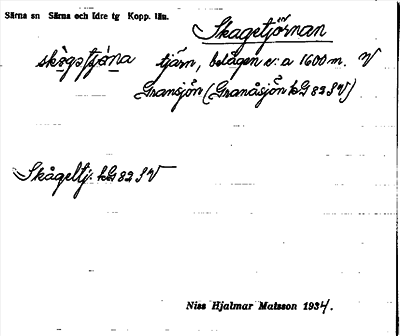 Särna sn Särna och Idre tg Kopp. län.
Skagetjörnan
tjärn, belägen c:a 1600 m. V
Gransjön (Granåsjön kG 83 SV)
Skågeltj. kG 82 SV
Niss Hjalmar Matsson 1934.